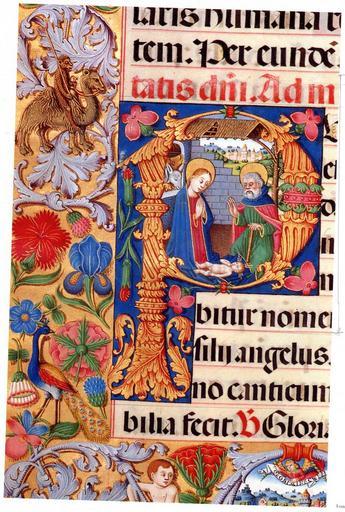 laris humana
tem. Per eunde
tatis dñi. Ad m
P
bitur nome
filij angelus.
no canticum
bilia fecit. V Glori